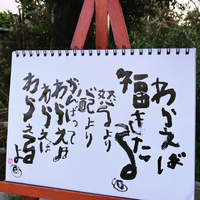 わらえば
福きたる
怒るより
心配より
がんばって
わらえば
わらえば
わらえるよ